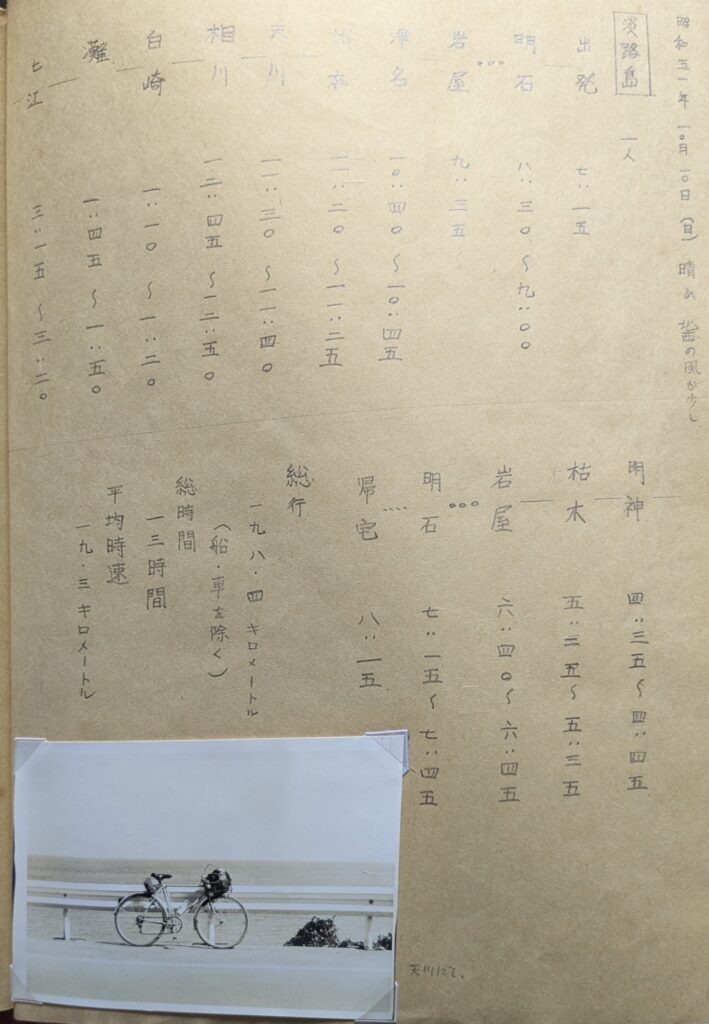 昭和五一年 一〇月 一〇日 (日) 晴れ 西の風が少し
淡路島 一人
出発 七:一五
明石 八:三〇〜九:〇〇
岩屋 九:三五
津名 一〇:四〇〜一〇:四五
洲本 一一:二〇〜一一:二五
天川 一一:三〇〜一一:四〇
相川 一二:四五〜一二:五〇
白崎 一:一〇〜一:二〇
灘 一:四五〜一:五〇
七江 三:一五〜三:二〇
明神 四:三五〜四:四五
枯木 五:二五〜五:三五
岩屋 六:四〇〜六:四五
明石 七:一五〜七:四五
帰宅 八:一五
総行
一九八・四 キロメートル
(船・車を除く)
総時間
一三時間
平均時速
一九・三 キロメートル
天川にて、